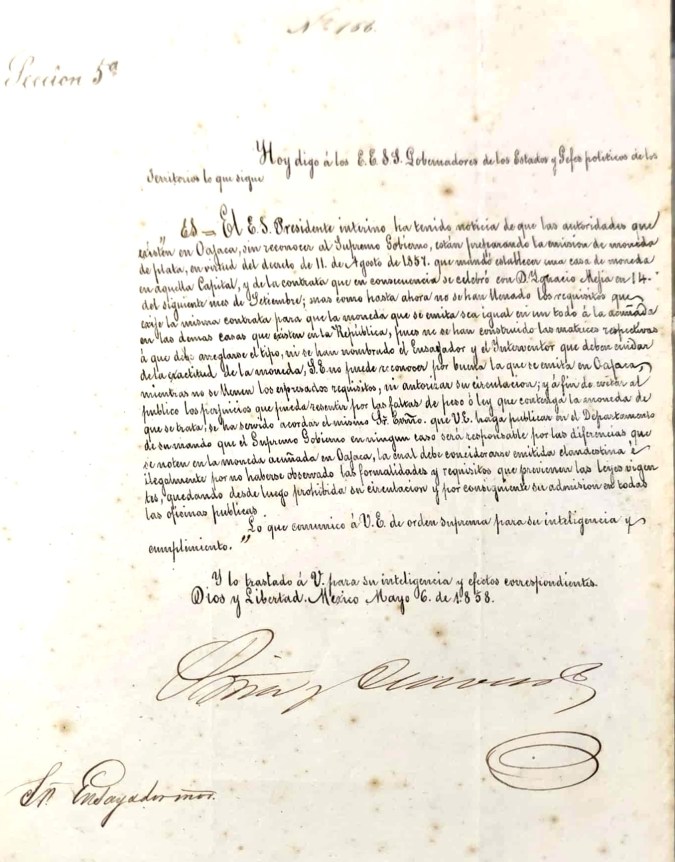 Nº 166.
Seccion 5ª
Hoy digo á los E.E. S.S. Gobernadores de los Estados y Gefes politicos de los
Territorios lo que sigue
"El E.S. Presidente interino ha tenido noticia de que las autoridades que
existen en Oajaca, sin reconocer al Supremo Gobierno, están preparando la emision de moneda
de plata, en virtud del decreto de 11. de Agosto de 1857. que mandó establecer una casa de moneda
en aquella Capital, y de la contrata que en consecuencia se celebró con D. Ignacio Mejia en 14.
del siguiente mes de Setiembre; mas como hasta ahora no se han llenado los requisitos que
exije la misma contrata para que la moneda que se emita sea igual en un todo á la acuñada
en las demas casas que existen en la República, pues no se han construido las matrices respectivas
á que debe arreglarse el tipo, ni se han nombrado el Ensayador y el Interventor que deben cuidar
de la exactitud de la moneda, S.E. no puede reconocer por buena la que se emita en Oajaca
mientras no se llenen los espresados requisitos, ni autorizar su circulacion; y á fin de evitar al
publico los perjuicios que pueda resentir por las faltas de peso ó ley que contenga la moneda de
que se trata, se ha servido acordar el mismo Sr. Exmo. que V.E. haga publicar en el Departamento
de su mando que el Supremo Gobierno en ningun caso será responsable por las diferencias que
se noten en la moneda acuñada en Oajaca, la cual debe considerarse emitida clandestina é
ilegalmente por no haberse observado las formalidades y requisitos que previenen las leyes vigen
tes, quedando desde luego prohibida su circulacion y por consiguiente su admision en todas
las oficinas publicas
Lo que comunico á V.E. de orden suprema para su inteligencia y
cumplimiento."
Y lo traslado á V. para su inteligencia y efectos correspondientes.
Dios y Libertad. Mexico Mayo 6. de 1858.
Sr. Ensayador mor.